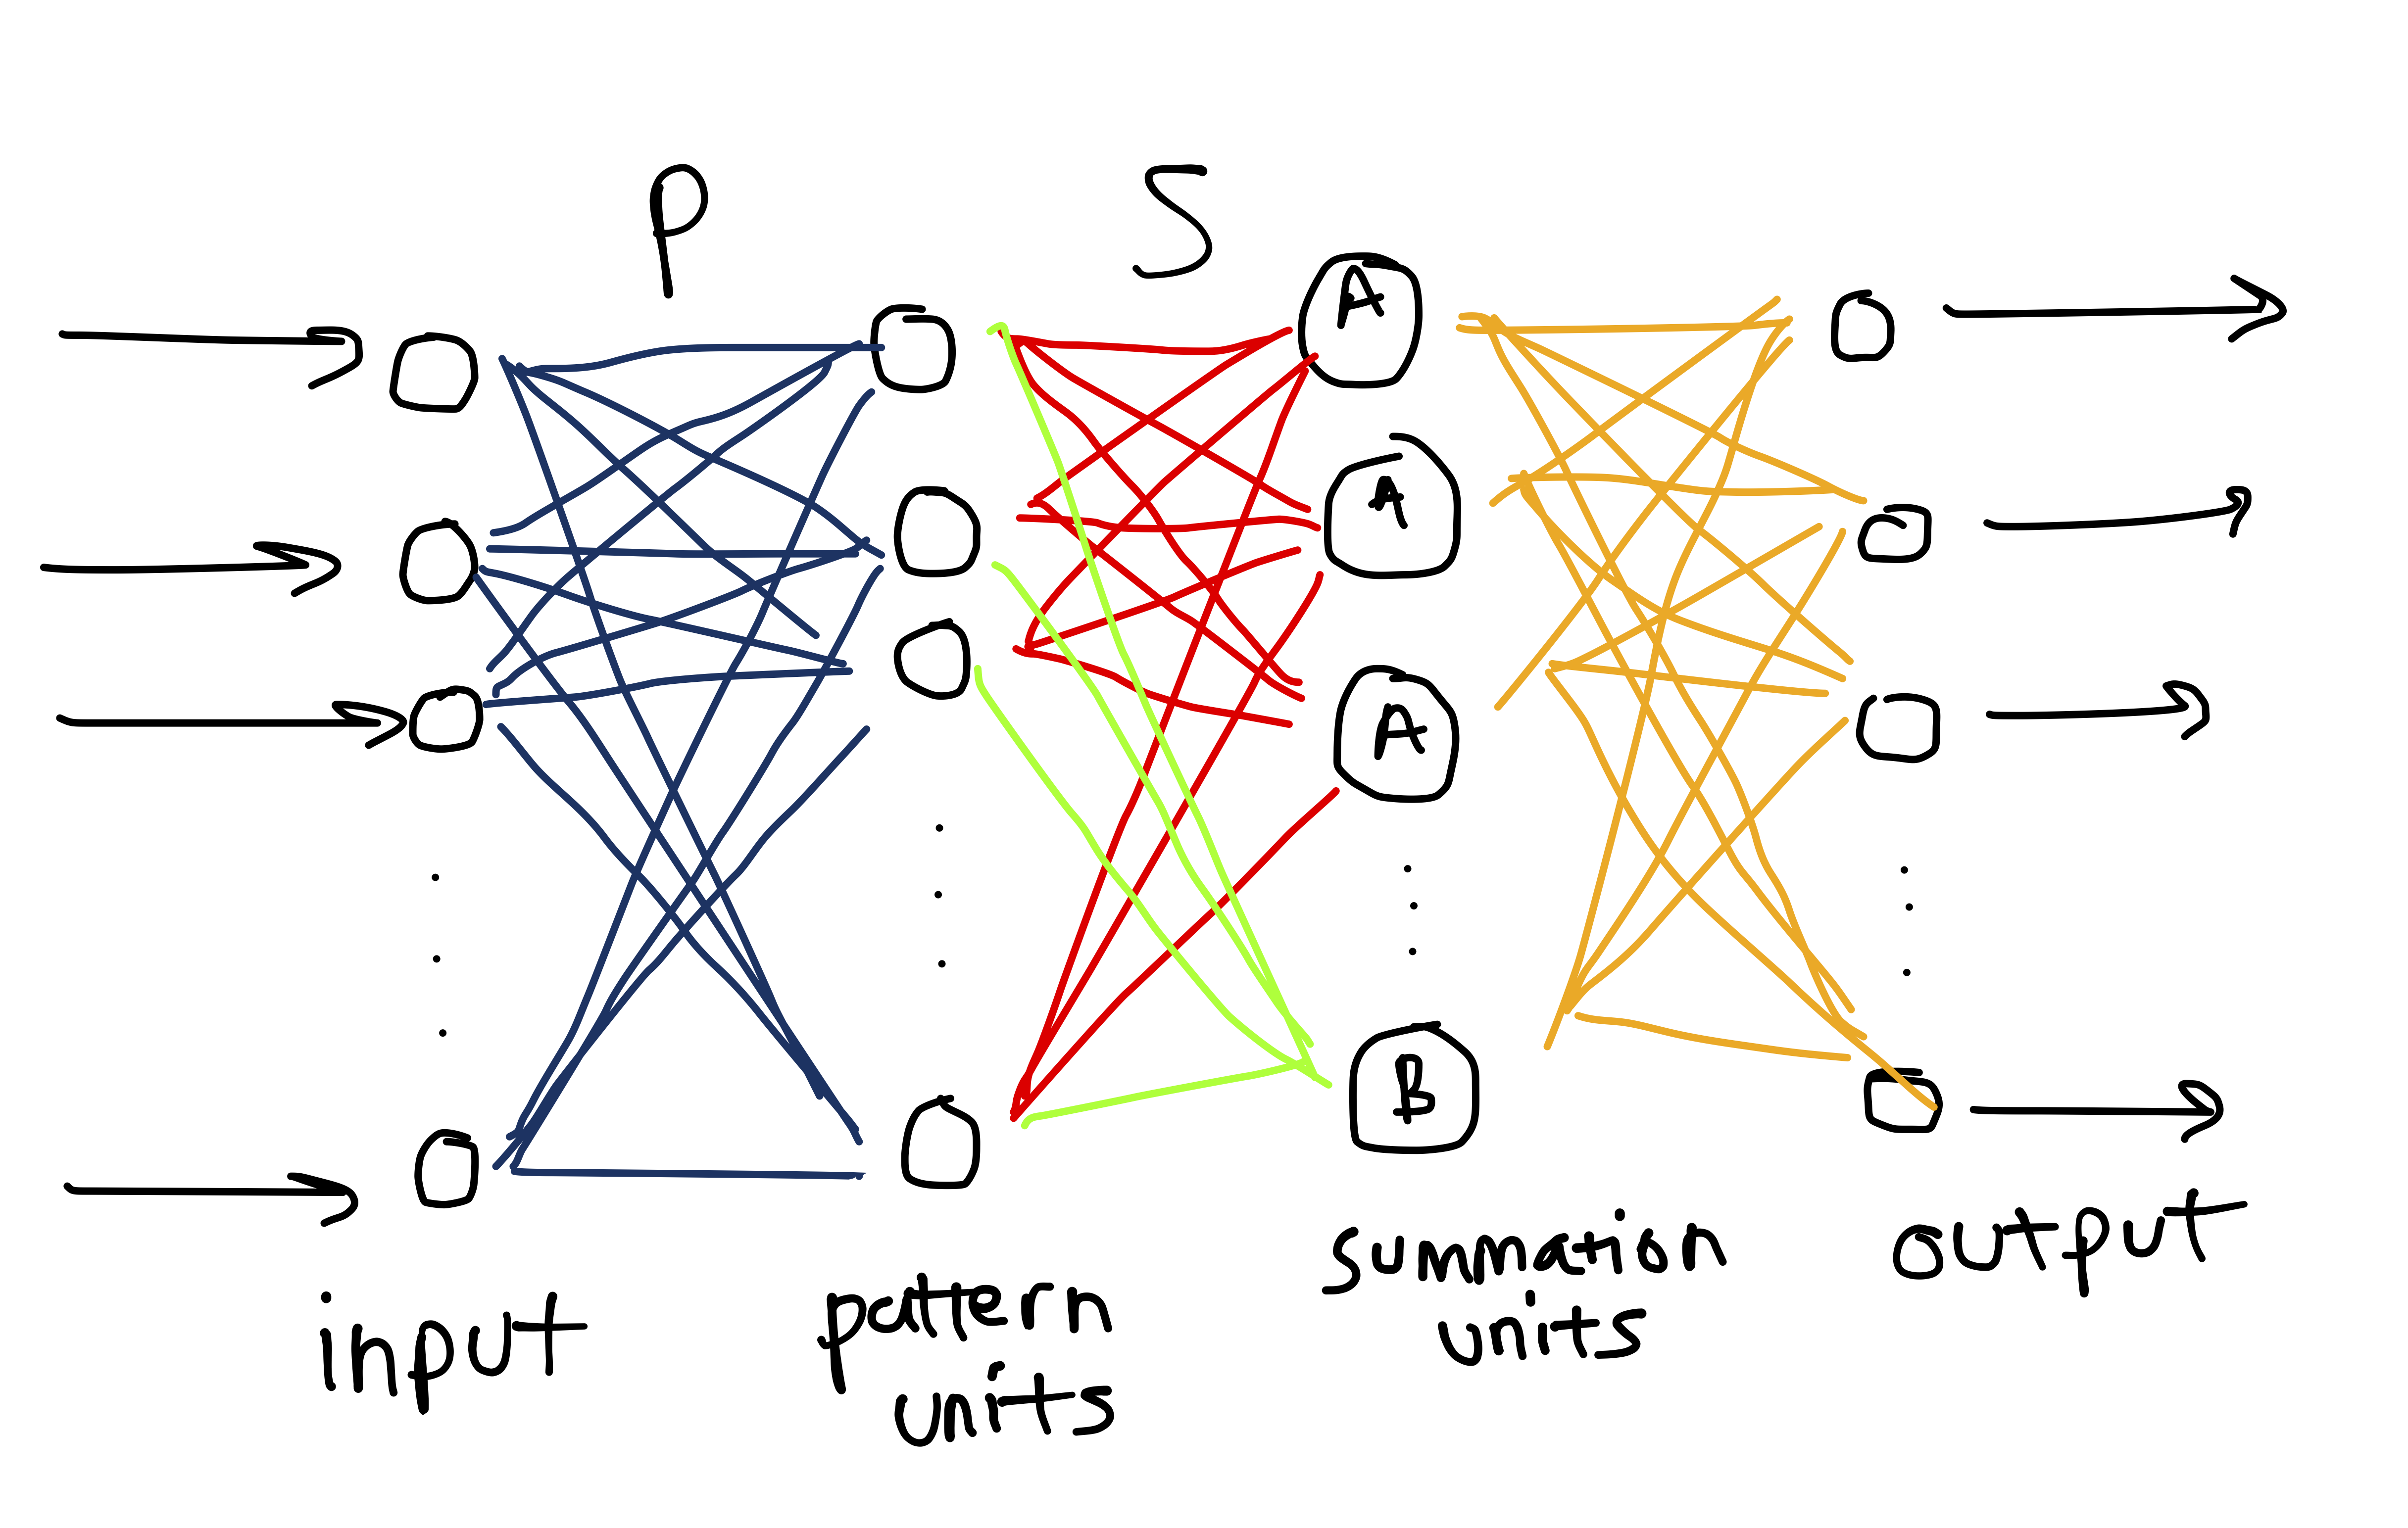 P
S
A
A
A
B
input
pattern
units
summation
units
output